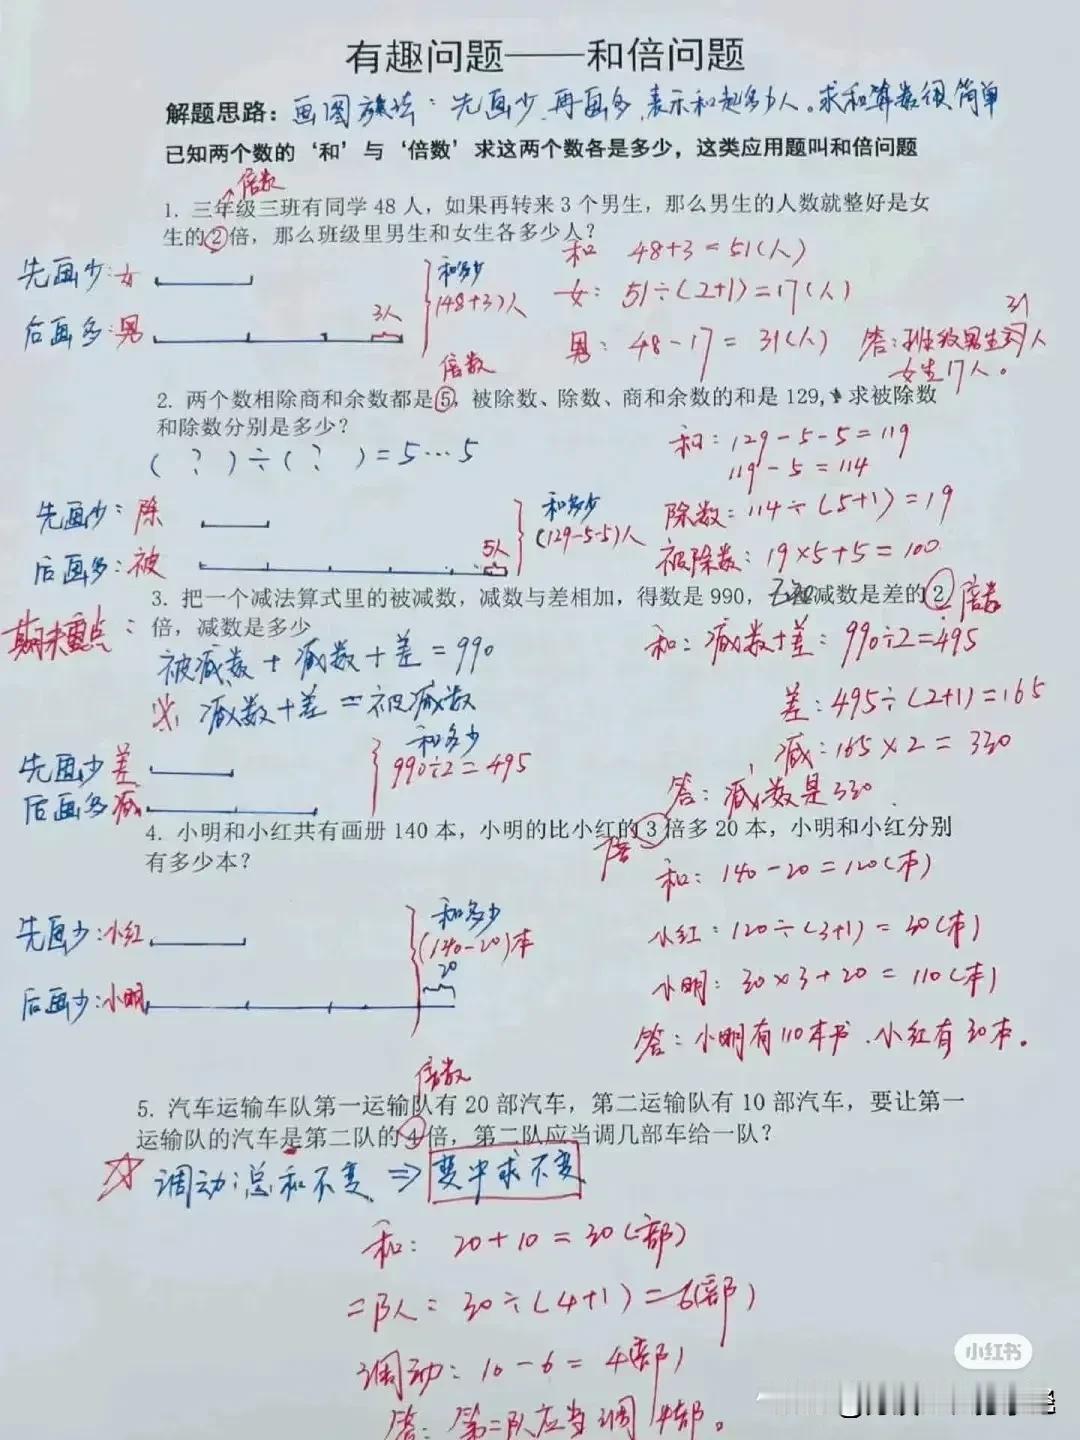 有趣问题——和倍问题
解题思路：画图方法：先画少，再画多，表示和起多少人。求和算数很简单
已知两个数的‘和’与‘倍数’求这两个数各是多少，这类应用题叫和倍问题
倍数
1. 三年级三班有同学 48 人，如果再转来 3 个男生，那么男生的人数就整好是女
生的 2 倍，那么班级里男生和女生各多少人？
和 48+3=51(人)
先画少：女
和多少
(48+3)人
女：51÷(2+1)=17(人)
后画多：男
3人
男：48-17=31(人)
答：班级男生31人
女生17人。
倍数
2. 两个数相除商和余数都是 5，被除数、除数、商和余数的和是 129，求被除数
和除数分别是多少？
(？)÷(？)=5…5
和：129-5-5=119
119-5=114
先画少：除
和多少
(129-5-5)人
除数：114÷(5+1)=19
后画多：被
5人
被除数：19×5+5=100
3. 把一个减法算式里的被减数，减数与差相加，得数是 990，减数是差的 2 倍数
期末重点：
倍，减数是多少
被减数+减数+差=990
和：减数+差：990÷2=495
减数+差=被减数
差：495÷(2+1)=165
先画少差
和多少
990÷2=495
减：165×2=330
后画多减
答：减数是330
4. 小明和小红共有画册 140 本，小明的比小红的 3 倍多 20 本，小明和小红分别
有多少本？
倍
和：140-20=120(本)
先画少：小红
和多少
(140-20)本
小红：120÷(3+1)=30(本)
后画少：小明
20
小明：30×3+20=110(本)
答：小明有110本书，小红有30本。
倍数
5. 汽车运输车队第一运输队有 20 部汽车，第二运输队有 10 部汽车，要让第一
运输队的汽车是第二队的 4 倍，第二队应当调几部车给一队？
☆ 调动：总和不变 ⇒ 变中求不变
和：20+10=30(部)
二队：30÷(4+1)=6(部)
调动：10-6=4(部)
答：第二队应当调4部。
小红书